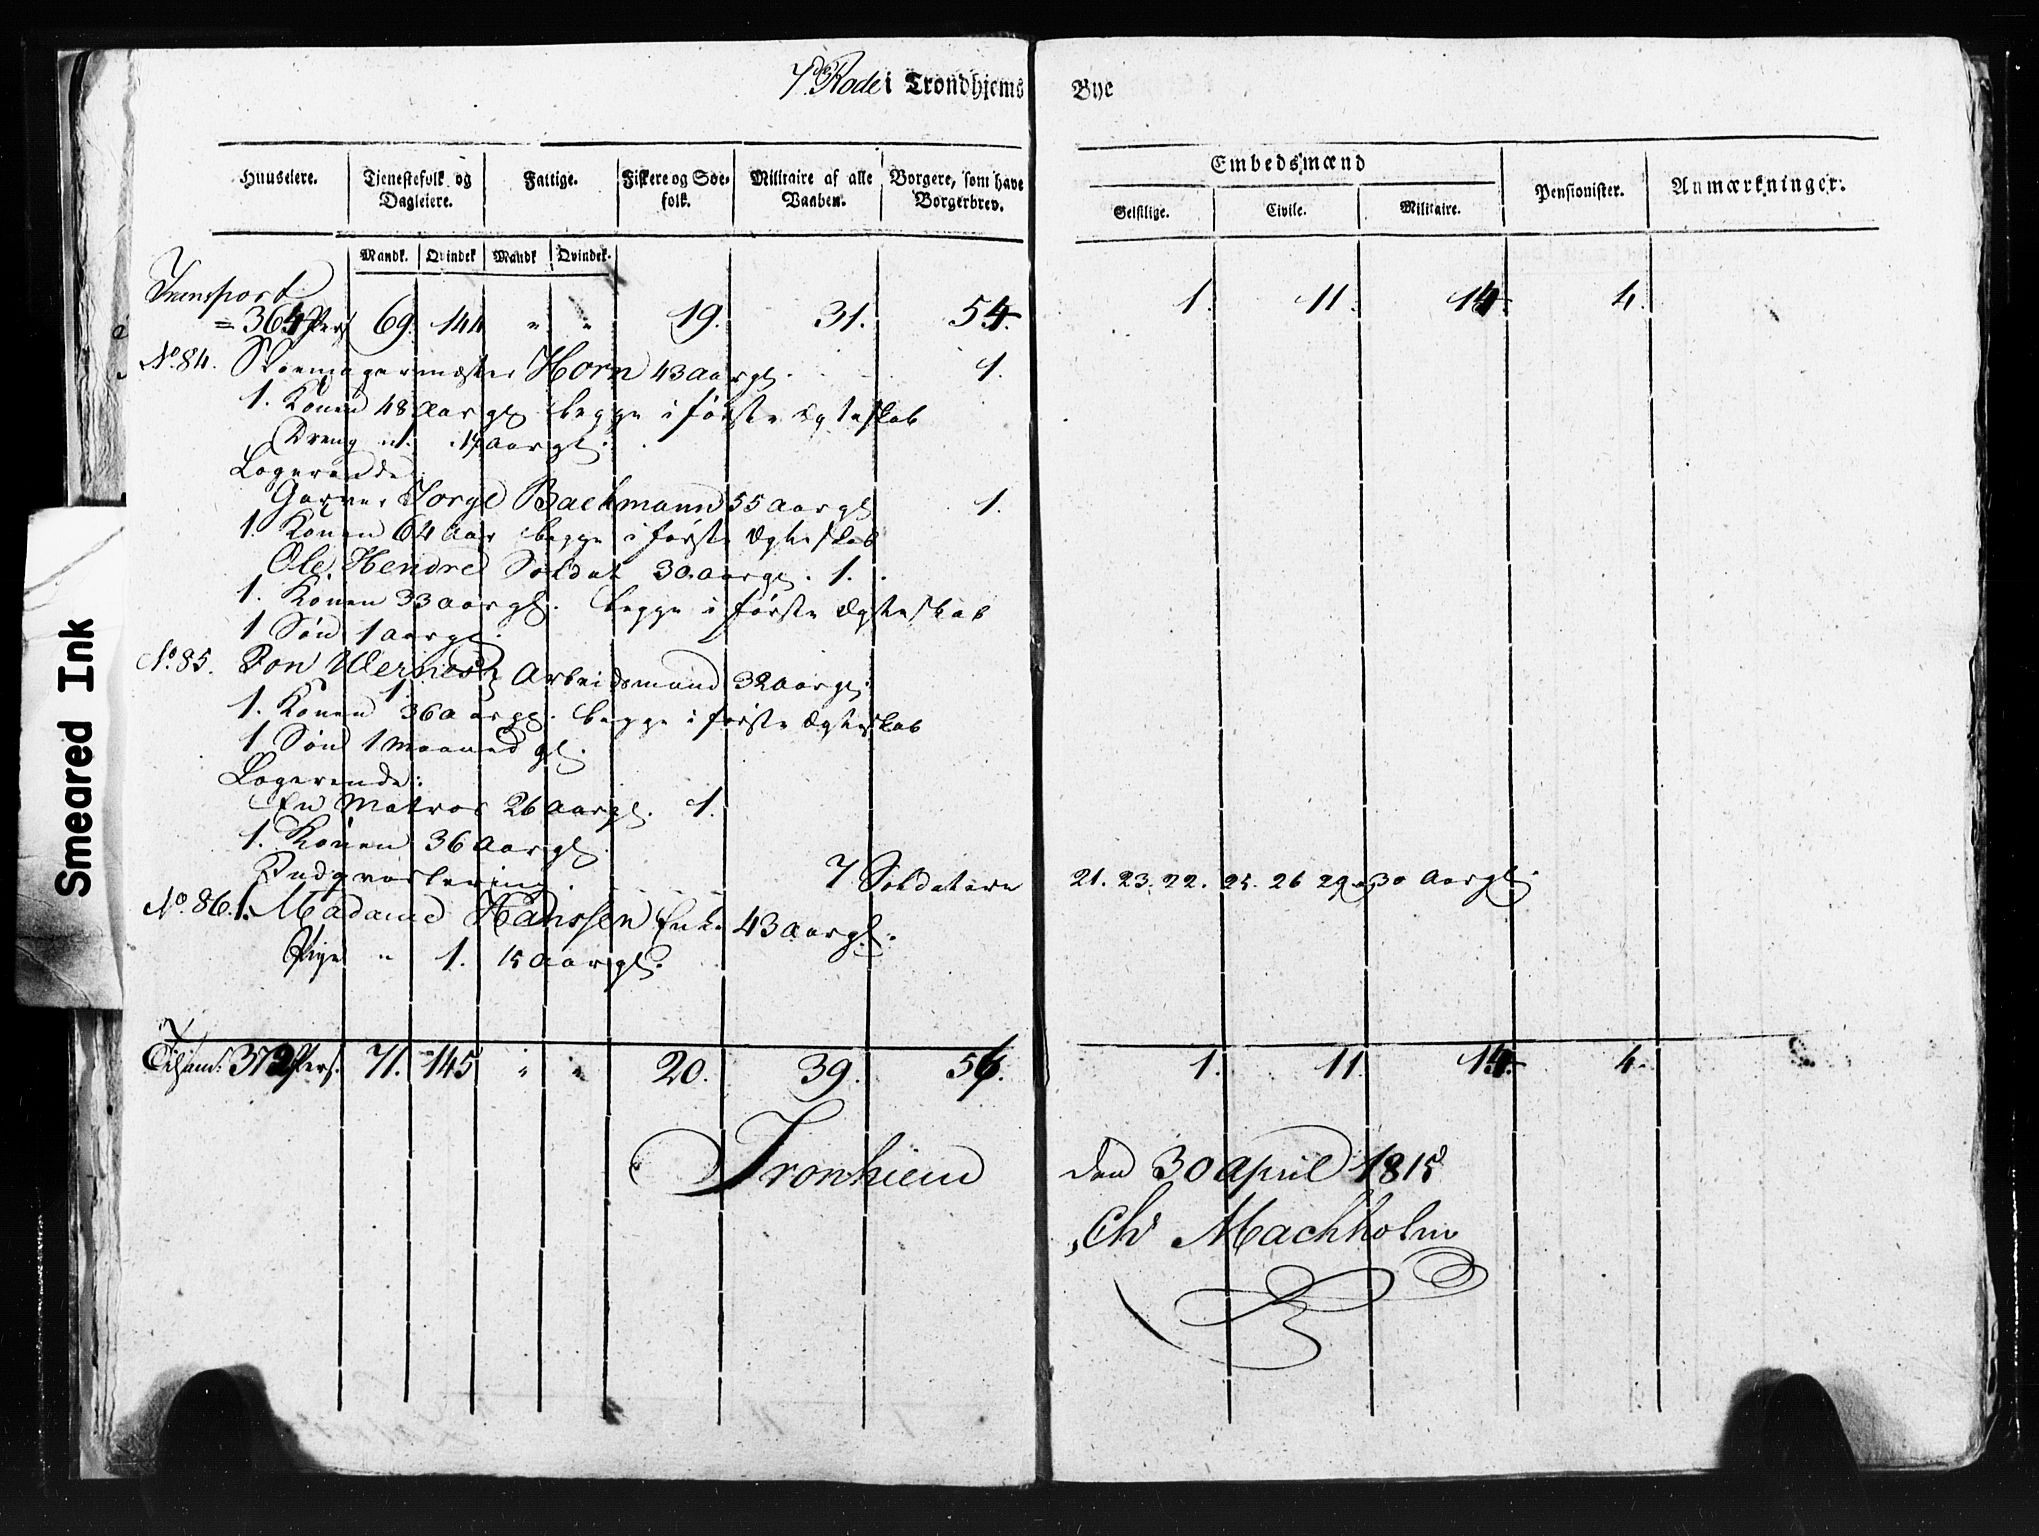 7de Rode i Trondhjems Bye
Huuseiere. Tjenestefolk og Dagleiere. Fattige. Fiskere og Søe-folk. Militaire af alle Vaaben. Borgere, som have Borgerbrev. Embedsmænd Pensionister. Anmærkninger.
Geistlige. Civile. Militaire.
Mandk. Qvindek Mandk Qvindek.
Transport
= 364 Pers 69. 144 " " 19. 31. 54. 1. 11. 14. 4.
No. 84. Skoemagermæster Horn 43 Aar gl. 1.
1. Konen 48 Aar gl begge i første Ægteskab
Dreng 1. 17 Aar gl.
Logerende
Garver Jorge Backmann 55 Aar gl 1.
1. Konen 64 Aar begge i første Ægteskab
Ole Hendre Soldat 30 Aar gl. 1.
1. Konen 33 Aar gl. begge i første Ægteskab
1 Søn 1 Aar gl.
No. 85. Arbeidsmand 32 Aar gl.
1.
1. Konen 36 Aar gl. begge i første Ægteskab
1 Søn 1 Maaned gl.
Logerende:
En Matros 26 Aar gl. 1.
1. Konen 36 Aar gl
Indqvartering 7 Soldatere 21. 23. 22. 25. 26 29 30 Aar gl.
No. 86. 1. Madame Hanssen Enke 43 Aar gl.
Pige " 1. 15 Aar gl.
Tilsam: 372 Pers. 71. 145 " " 20. 39. 56. 1. 11. 14. 4.
Tronhiem den 30 April 1815
Ch Machholm
Smeared Ink